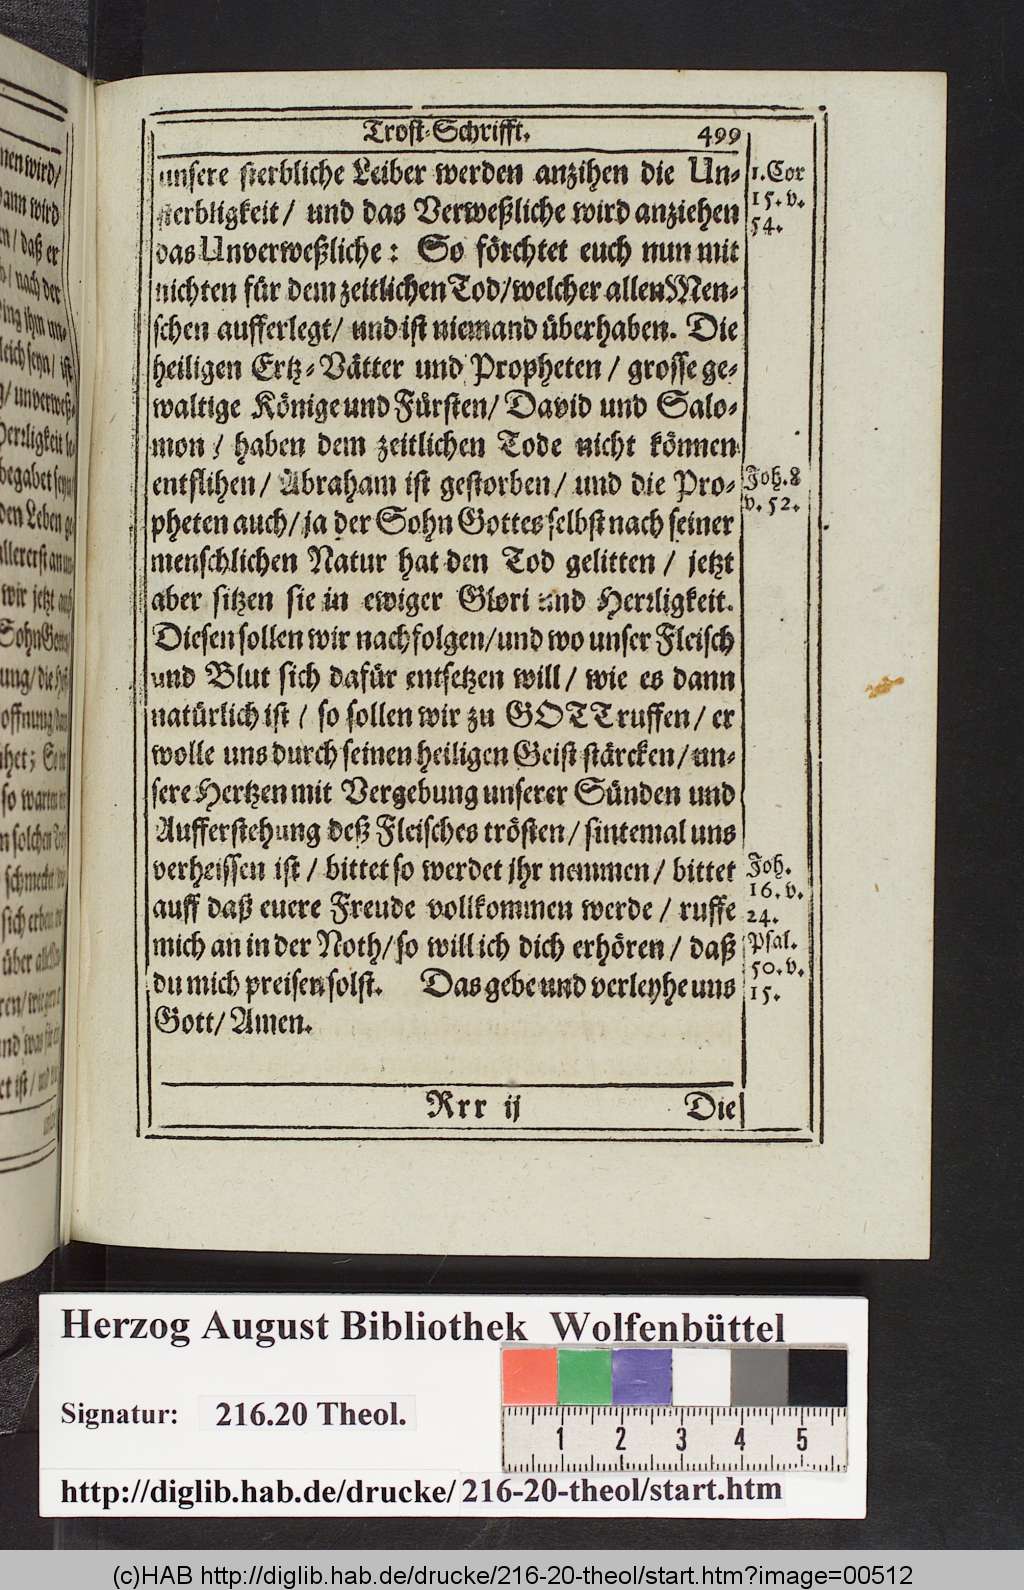 Trost-Schrifft. 499
unsere sterbliche Leiber werden anzihen die Un-
sterbligkeit / und das Verweßliche wird anziehen
das Unverweßliche : So förchtet euch nun mit
nichten für dem zeitlichen Tod / welcher allen Men-
schen aufferlegt / und ist niemand überhaben. Die
heiligen Ertz-Vätter und Propheten / grosse ge-
waltige Könige und Fürsten / David und Salo-
mon / haben dem zeitlichen Tode nicht können
entflihen / Abraham ist gestorben / und die Pro-
pheten auch / ja der Sohn Gottes selbst nach seiner
menschlichen Natur hat den Tod gelitten / jetzt
aber sitzen sie in ewiger Glori und Herrligkeit.
Diesen sollen wir nachfolgen / und wo unser Fleisch
und Blut sich dafür entsetzen will / wie es dann
natürlich ist / so sollen wir zu GOTT ruffen / er
wolle uns durch seinen heiligen Geist stärcken / un-
sere Hertzen mit Vergebung unserer Sünden und
Aufferstehung deß Fleisches trösten / sintemal uns
verheissen ist / bittet so werdet jhr nemmen / bittet
auff daß euere Freude vollkommen werde / ruffe
mich an in der Noth / so will ich dich erhören / daß
du mich preisen solst. Das gebe und verleyhe uns
Gott / Amen.
1. Cor
15. v.
54.
Joh. 8
v. 52.
Joh.
16. v.
24.
Psal.
50. v.
15.
Rrr ij Die
Herzog August Bibliothek Wolfenbüttel
Signatur: 216.20 Theol.
1 2 3 4 5
http://diglib.hab.de/drucke/ 216-20-theol/start.htm
(c)HAB http://diglib.hab.de/drucke/216-20-theol/start.htm?image=00512